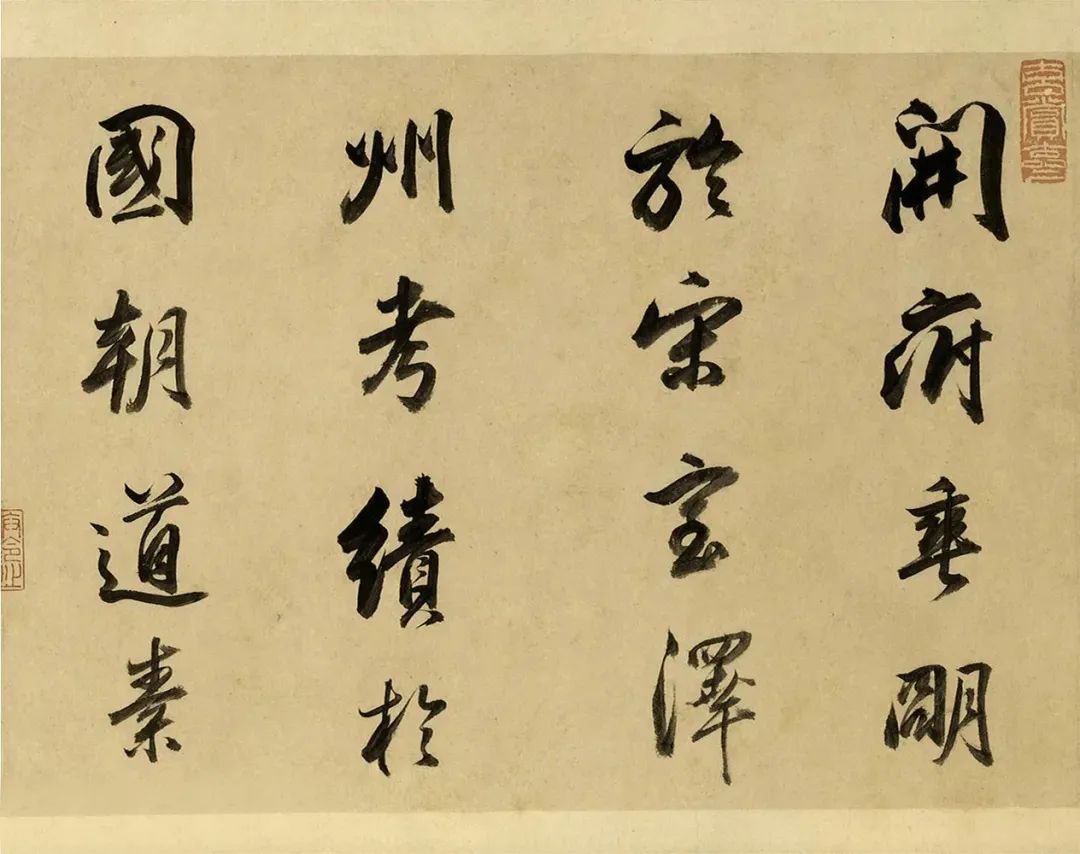 開府垂明
於宋室澤
州考績於
國朝道素